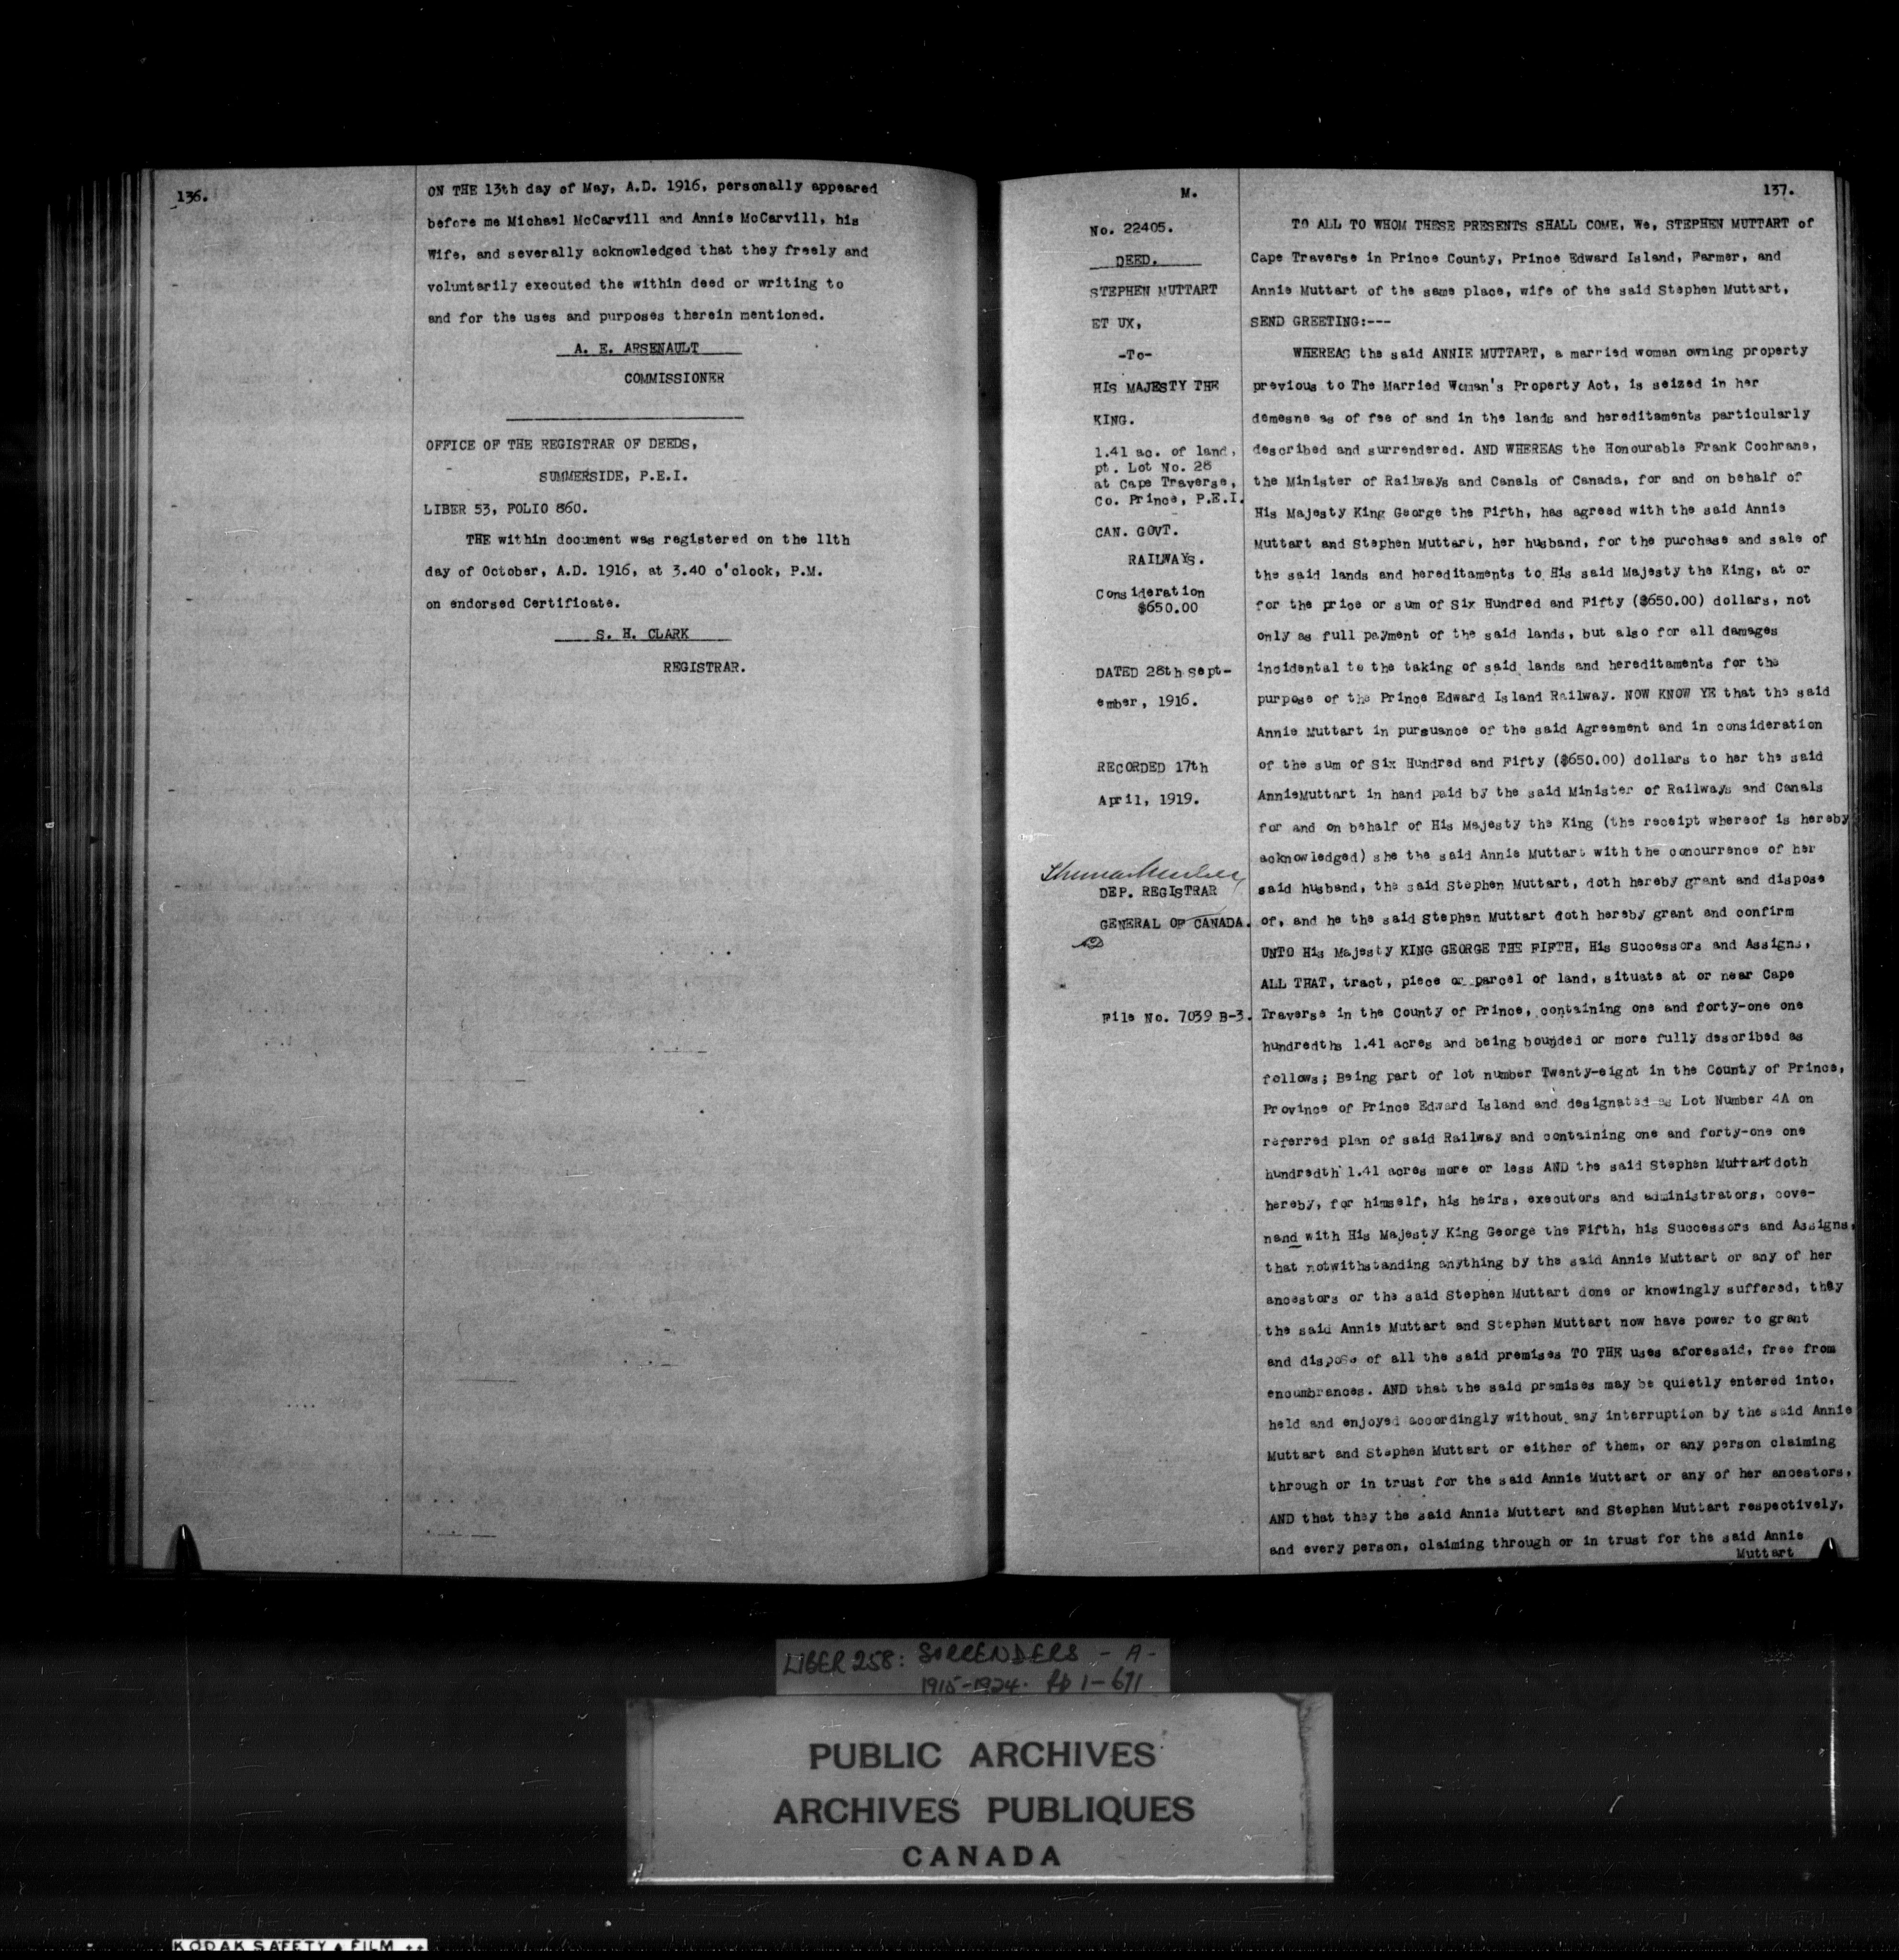 136.
ON THE 13th day of May, A.D. 1916, personally appeared
before me Michael McCarvill and Annie McCarvill, his
Wife, and severally acknowledged that they freely and
voluntarily executed the within deed or writing to
and for the uses and purposes therein mentioned.
A. E. ARSENAULT
COMMISSIONER
OFFICE OF THE REGISTRAR OF DEEDS,
SUMMERSIDE, P.E.I.
LIBER 53, FOLIO 860.
THE within document was registered on the 11th
day of October, A.D. 1916, at 3.40 o'clock, P.M.
on endorsed Certificate.
S. H. CLARK
REGISTRAR.
M.
No. 22405.
DEED.
STEPHEN MUTTART
ET UX,
-To-
HIS MAJESTY THE
KING.
1.41 ac. of land,
pt. Lot No. 28
at Cape Traverse,
Co. Prince, P.E.I.
CAN. GOVT.
RAILWAYS.
Consideration
$650.00
DATED 28th Sept-
ember, 1916.
RECORDED 17th
April, 1919.
DEP. REGISTRAR
GENERAL OF CANADA.
File No. 7039 B-3.
137.
TO ALL TO WHOM THESE PRESENTS SHALL COME, We, STEPHEN MUTTART of
Cape Traverse in Prince County, Prince Edward Island, Farmer, and
Annie Muttart of the same place, wife of the said Stephen Muttart,
SEND GREETING:---
WHEREAS the said ANNIE MUTTART, a married woman owning property
previous to The Married Woman's Property Act, is seized in her
demesne as of fee of and in the lands and hereditaments particularly
described and surrendered. AND WHEREAS the Honourable Frank Cochrane,
the Minister of Railways and Canals of Canada, for and on behalf of
His Majesty King George the Fifth, has agreed with the said Annie
Muttart and Stephen Muttart, her husband, for the purchase and sale of
the said lands and hereditaments to His said Majesty the King, at or
for the price or sum of Six Hundred and Fifty ($650.00) dollars, not
only as full payment of the said lands, but also for all damages
incidental to the taking of said lands and hereditaments for the
purpose of the Prince Edward Island Railway. NOW KNOW YE that the said
Annie Muttart in pursuance of the said Agreement and in consideration
of the sum of Six Hundred and Fifty ($650.00) dollars to her the said
AnnieMuttart in hand paid by the said Minister of Railways and Canals
for and on behalf of His Majesty the King (the receipt whereof is hereby
acknowledged) she the said Annie Muttart with the concurrence of her
said husband, the said Stephen Muttart, doth hereby grant and dispose
of, and he the said Stephen Muttart doth hereby grant and confirm
UNTO His Majesty KING GEORGE THE FIFTH, His Successors and Assigns,
ALL THAT, tract, piece or parcel of land, situate at or near Cape
Traverse in the County of Prince, containing one and forty-one one
hundredths 1.41 acres and being bounded or more fully described as
follows; Being part of lot number Twenty-eight in the County of Prince,
Province of Prince Edward Island and designated as Lot Number 4A on
referred plan of said Railway and containing one and forty-one one
hundredth 1.41 acres more or less AND the said Stephen Muttart doth
hereby, for himself, his heirs, executors and administrators, cove-
nand with His Majesty King George the Fifth, his Successors and Assigns,
that notwithstanding anything by the said Annie Muttart or any of her
ancestors or the said Stephen Muttart done or knowingly suffered, they
the said Annie Muttart and Stephen Muttart now have power to grant
and dispose of all the said premises TO THE uses aforesaid, free from
encumbrances. AND that the said premises may be quietly entered into,
held and enjoyed accordingly without any interruption by the said Annie
Muttart and Stephen Muttart or either of them, or any person claiming
through or in trust for the said Annie Muttart or any of her ancestors,
AND that they the said Annie Muttart and Stephen Muttart respectively,
and every person, claiming through or in trust for the said Annie
Muttart
LIBER 258: SURRENDERS - A -
1915-1924. pp 1-671
PUBLIC ARCHIVES
ARCHIVES PUBLIQUES
CANADA
KODAK SAFETY FILM